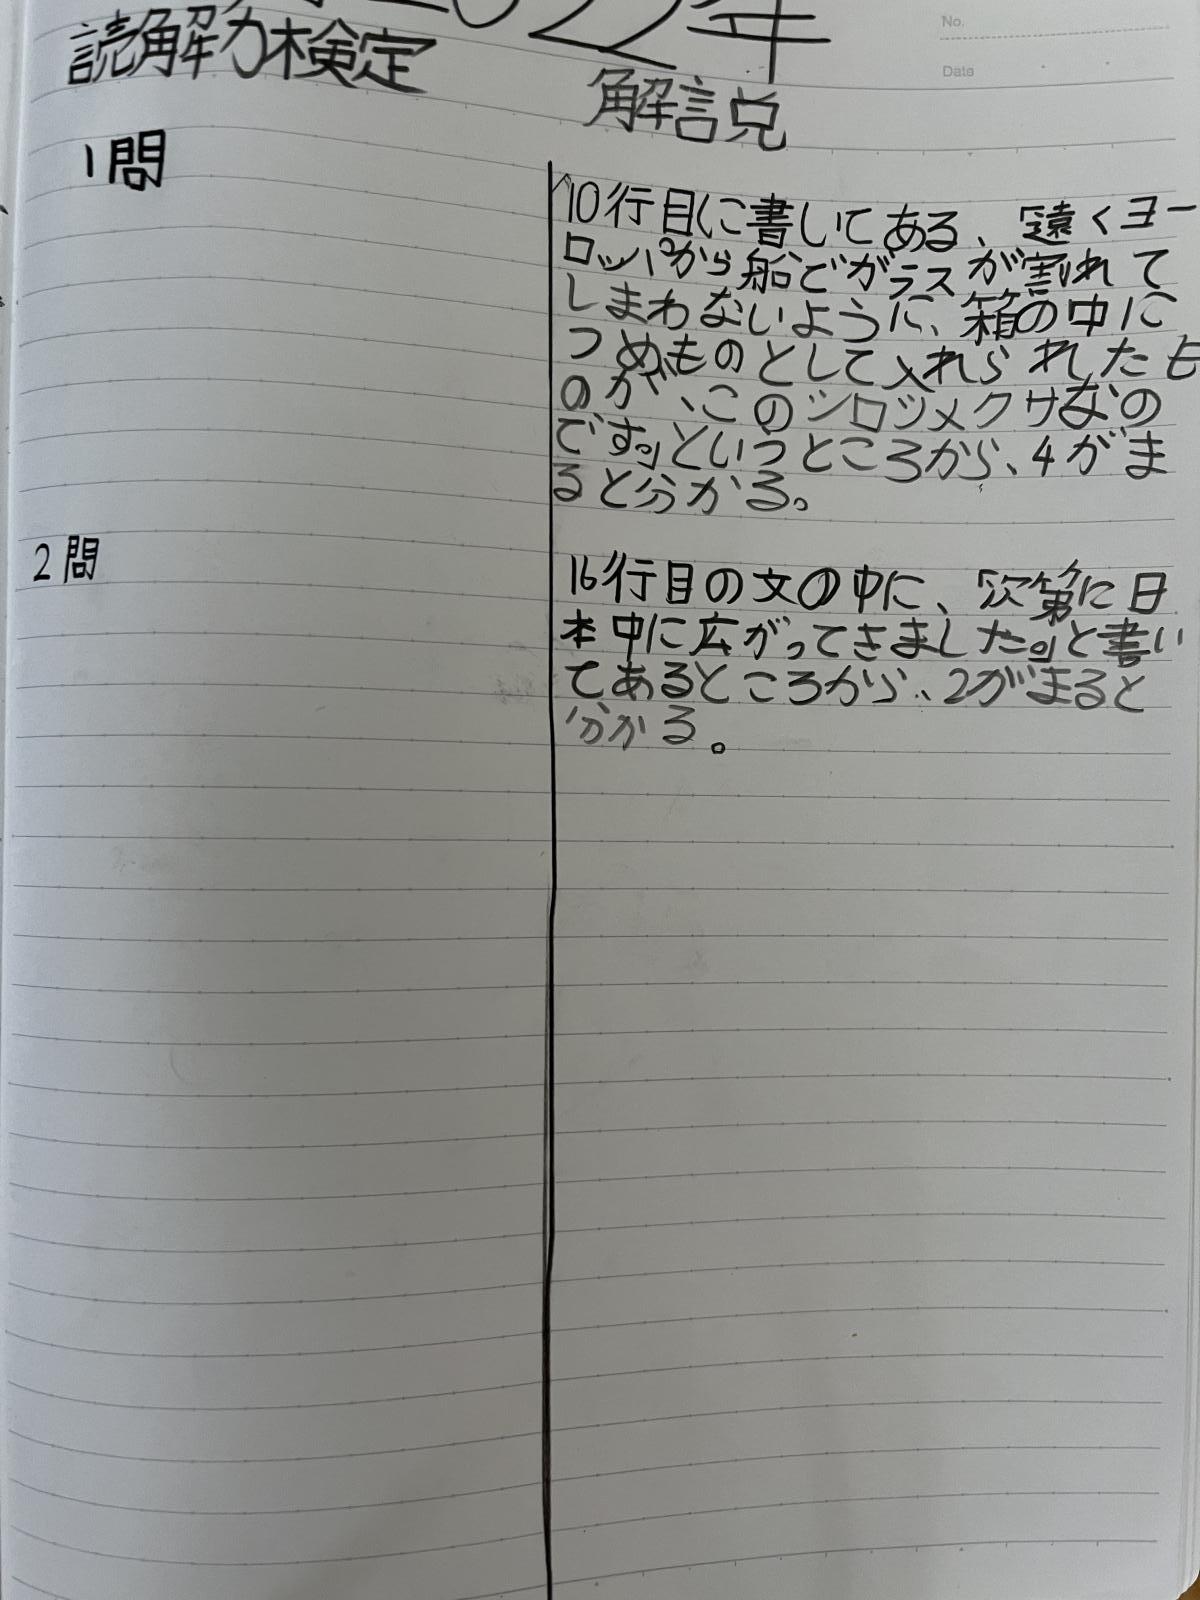 2022年
No.
読解力検定
Date
解説
1問
10行目に書してある、「遠くヨー
ロッパから船でガラスが割れて
しまわないように、箱の中に
つめものとして入れられたも
のが、このシロツメクサなの
です。」というところから、4がま
ると分かる。
2問
16行目の文の中に、「次第に日
本中に広がってきました。」と書い
てあるところから、2がまると
分かる。